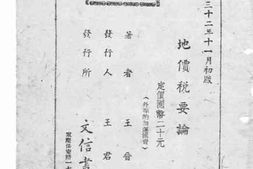 三十二年十一月初版
地價稅要論
定價國幣二十元
(外埠酌加運匯費)
著者 王晉
發行人 王君
發行所 文信書